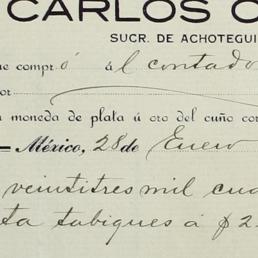 CARLOS C
SUCR. DE ACHOTEGUI
ue compró al contado
or
moneda de plata ú oro del cuño cor
México, 28 de Enero
veintitres mil cua
ta tabiques á $ 2